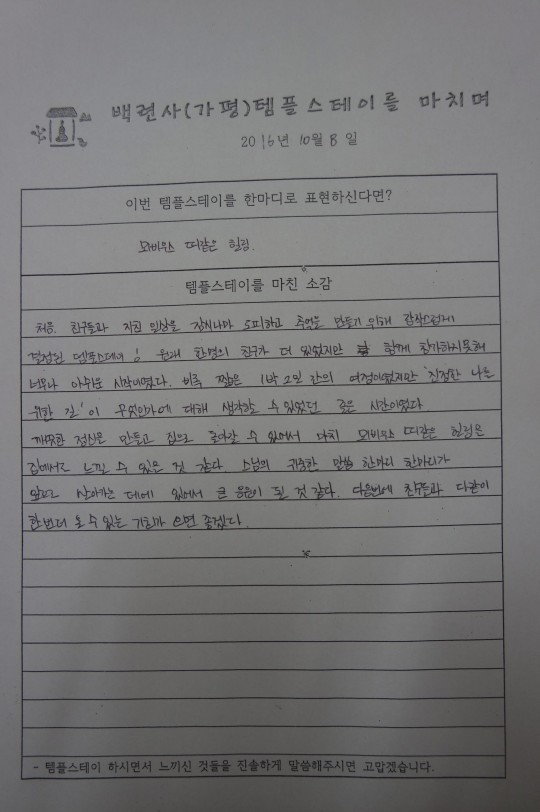 백련사(가평)템플스테이를 마치며
2016년 10월 8일
이번 템플스테이를 한마디로 표현하신다면?
뫼비우스 띠같은 힐링.
템플스테이를 마친 소감
처음. 친구들과 지친 일상을 잠시나마 도피하고 추억을 만들기 위해 갑작스럽게
결정된 템플스테이! 원래 한명의 친구가 더 있었지만 함께 참가하지못해
너무나 아쉬운 시작이였다. 비록 짧은 1박 2일 간의 여정이였지만 '진정한 나를
위한 길'이 무엇인가에 대해 생각할 수 있었던 좋은 시간이였다
깨끗한 정신을 만들고 집으로 돌아갈 수 있어서 마치 뫼비우스 띠같은 힐링은
집에서도 느낄 수 있을 것 같다. 스님의 귀중한 말씀 한마디 한마디가
앞으로 살아가는 데에 있어서 큰 도움이 될 것 같다. 다음번에 친구들과 다같이
한번더 올 수 있는 기회가 오면 좋겠다.
- 템플스테이 하시면서 느끼신 것들을 진솔하게 말씀해주시면 고맙겠습니다.